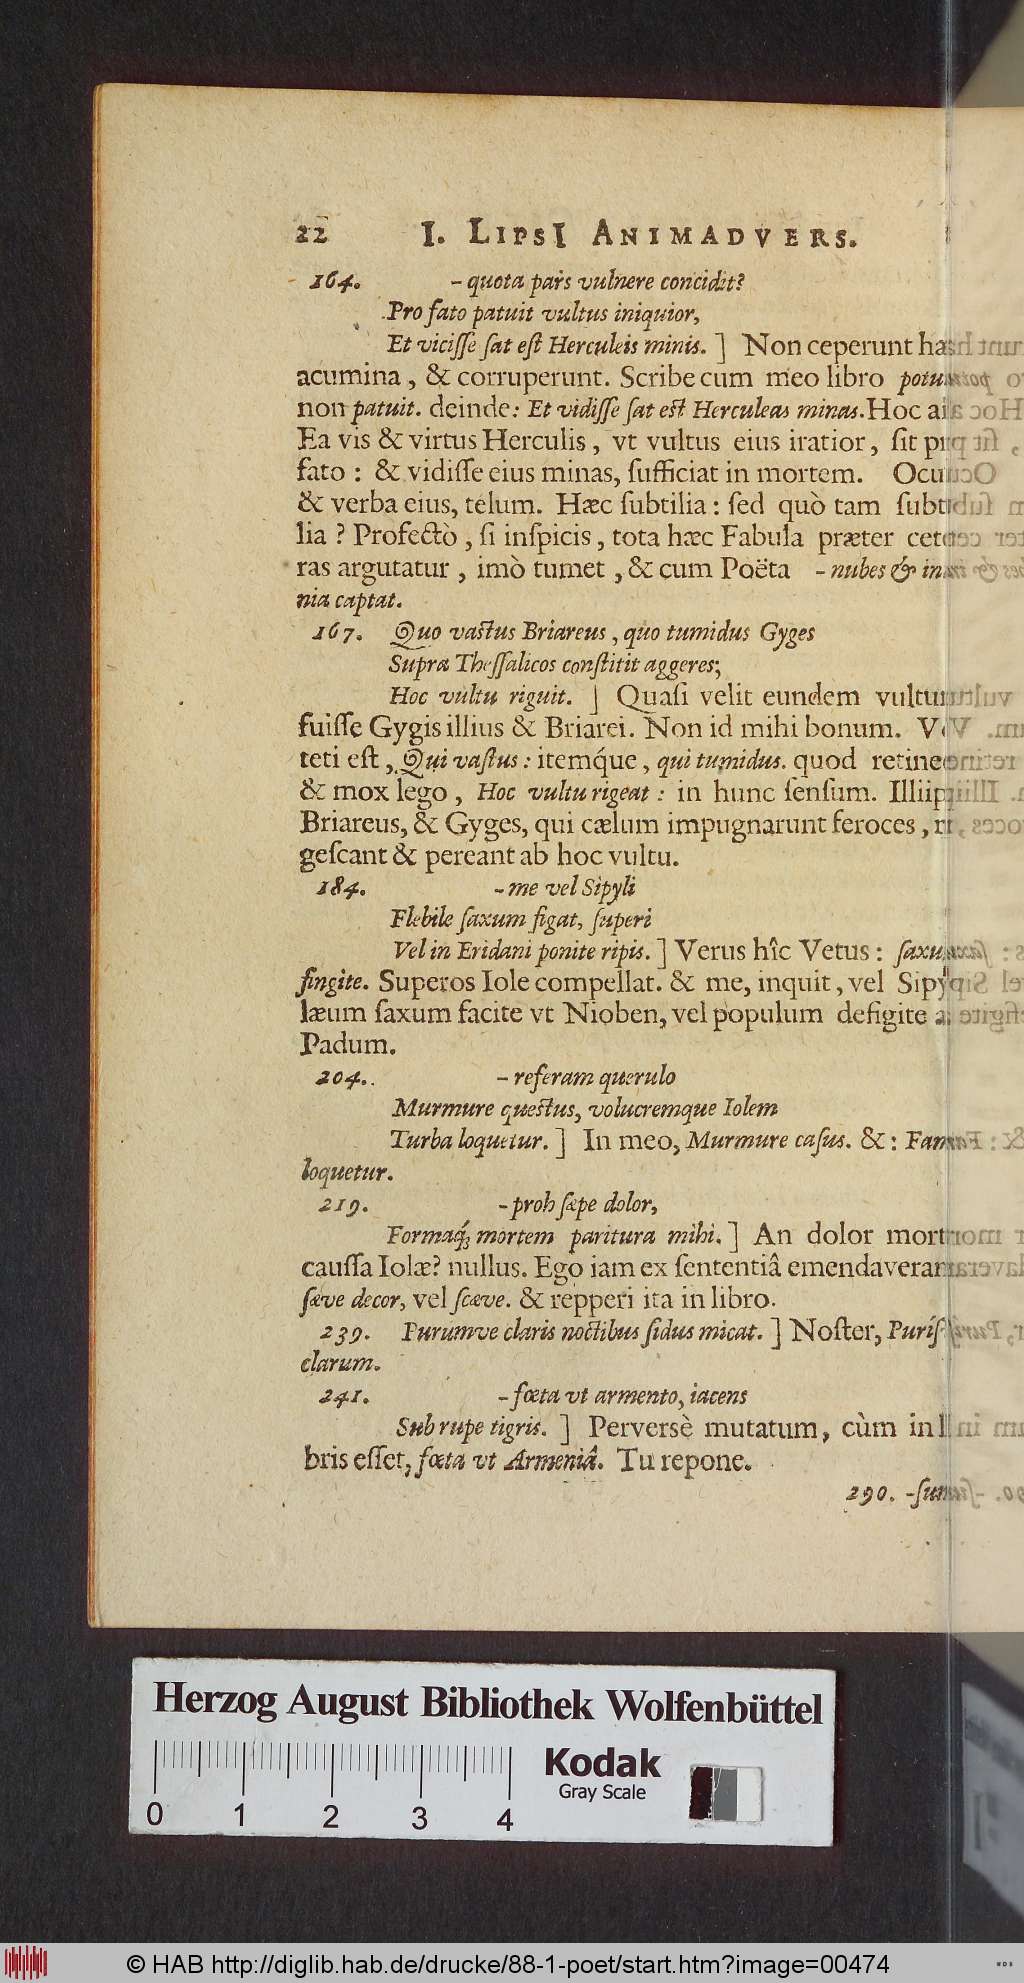 22 I. LIPSI ANIMADVERS.
164. – quota pars vulnere concidit?
Pro fato patuit vultus iniquior,
Et vicisse sat est Herculeis minis. ] Non ceperunt
acumina, & corruperunt. Scribe cum meo libro
non patuit. deinde: Et vidisse sat est Herculeas minas. Hoc
Ea vis & virtus Herculis, vt vultus eius iratior, sit
fato: & vidisse eius minas, sufficiat in mortem.
& verba eius, telum. Hæc subtilia: sed quò tam
lia? Profectò, si inspicis, tota hæc Fabula præter
ras argutatur, imò tumet, & cum Poëta – nubes &
nia captat.
167. Quo vastus Briareus, quo tumidus Gyges
Supra Thessalicos constitit aggeres;
Hoc vultu riguit. ] Quasi velit eundem
fuisse Gygis illius & Briarei. Non id mihi bonum.
teti est, Qui vastus: itemq́ue, qui tumidus. quod
& mox lego, Hoc vultu rigeat: in hunc sensum.
Briareus, & Gyges, qui cælum impugnarunt feroces,
gescant & pereant ab hoc vultu.
184. – me vel Sipyli
Flebile saxum figat, superi
Vel in Eridani ponite ripis. ] Verus hîc Vetus:
fingite. Superos Iole compellat. & me, inquit, vel
læum saxum facite vt Nioben, vel populum defigite
Padum.
204. – referam querulo
Murmure questus, volucremque Iolem
Turba loquetur. ] In meo, Murmure casus. &:
loquetur.
219. – proh sæpe dolor,
Formaq́; mortem paritura mihi. ] An dolor
caussa Iolæ? nullus. Ego iam ex sententiâ
sæve decor, vel scæve. & repperi ita in libro.
239. Purumve claris noctibus sidus micat. ] Noster,
clarum.
241. – fœta vt armento, iacens
Sub rupe tigris. ] Perversè mutatum, cùm in
bris esset, fœta vt Armeniâ. Tu repone.
290.
Herzog August Bibliothek Wolfenbüttel
Kodak
Gray Scale
0 1 2 3 4
© HAB http://diglib.hab.de/drucke/88-1-poet/start.htm?image=00474